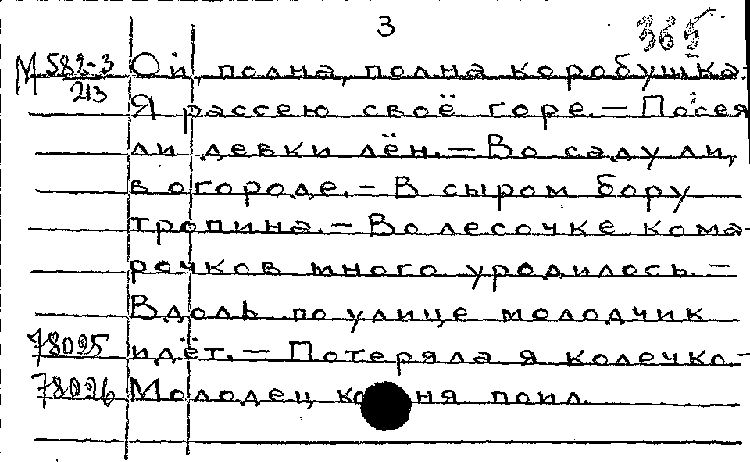 3
365
М 582-3 Ой, полна, полна коробушка.
213
Я рассею своё горе. — Посея
ли девки лён. — Во саду ли,
в огороде. — В сыром бору
тропина. — Во лесочке кома-
рочков много уродилось. —
Вдоль по улице молодчик
78095 идёт. — Потеряла я колечко. —
78096 Молодец ко ня поил.